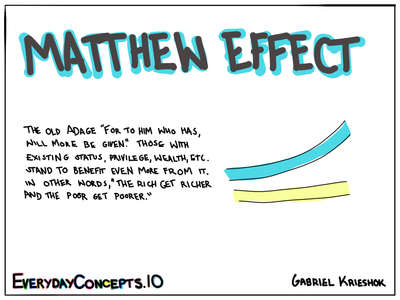 MATTHEW EFFECT
THE OLD ADAGE "FOR TO HIM WHO HAS,
WILL MORE BE GIVEN." THOSE WITH
EXISTING STATUS, PRIVILEGE, WEALTH, ETC.
STAND TO BENEFIT EVEN MORE FROM IT.
IN OTHER WORDS, "THE RICH GET RICHER
AND THE POOR GET POORER."
EVERYDAYCONCEPTS.IO
GABRIEL KRIESHOK